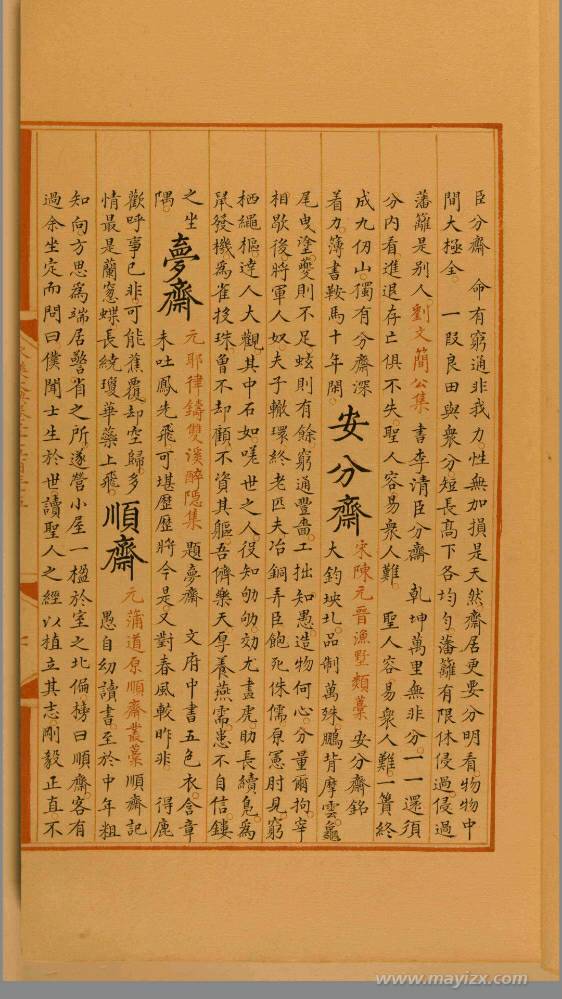 臣分齋　命有窮通非我力性無加損是天然齋居更要分明看物物中
間大極全　一叚良田與衆分短長高下各均勻藩籬有限休侵過侵過
藩籬是別人劉文簡公集書李清臣分齋　乾坤萬里無非分一一還須
分内看進退存亡俱不失聖人容易衆人難　聖人容易衆人難一簣終
成九仞山獨有分齋深
着力簿書鞍馬十年閑
安分齋
宋陳元晉漁墅類藁　安分齋銘
大鈞坱圠品制萬殊鵬背摩雲龜
尾曳塗夔則不足蚿則有餘窮通豐嗇工拙知愚造物何心分量爾拘宰
相歇後將軍人奴夫子轍環終老匹夫冶銅弄臣飽死侏儒原憲肘見窮
栖繩樞達人大觀其中石如嗟世之人役知劬劬効尤畫虎助長續鳧爲
鼠發機爲雀投珠曾不却顧不資其軀吾儕樂天厚養燕需患不自信鏤
之坐
隅
夢齋
元耶律鑄雙溪醉隐集　題夢齋　文府中書五色衣含章
未吐鳳先飛可堪歷歷將今是又對春風較昨非　得鹿
歡呼事已非可能蕉覆却空歸多
情最是蘭窻蝶長繞瓊華蘂上飛
順齋
元蒲道原順齋叢藁　順齋記
愚自幼讀書至於中年粗
知向方思爲端居警省之所遂營小屋一楹於室之北偏榜曰順齋客有
過余坐定而問曰僕聞士生於世讀聖人之經以植立其志剛毅正直不
www.mayizx.com